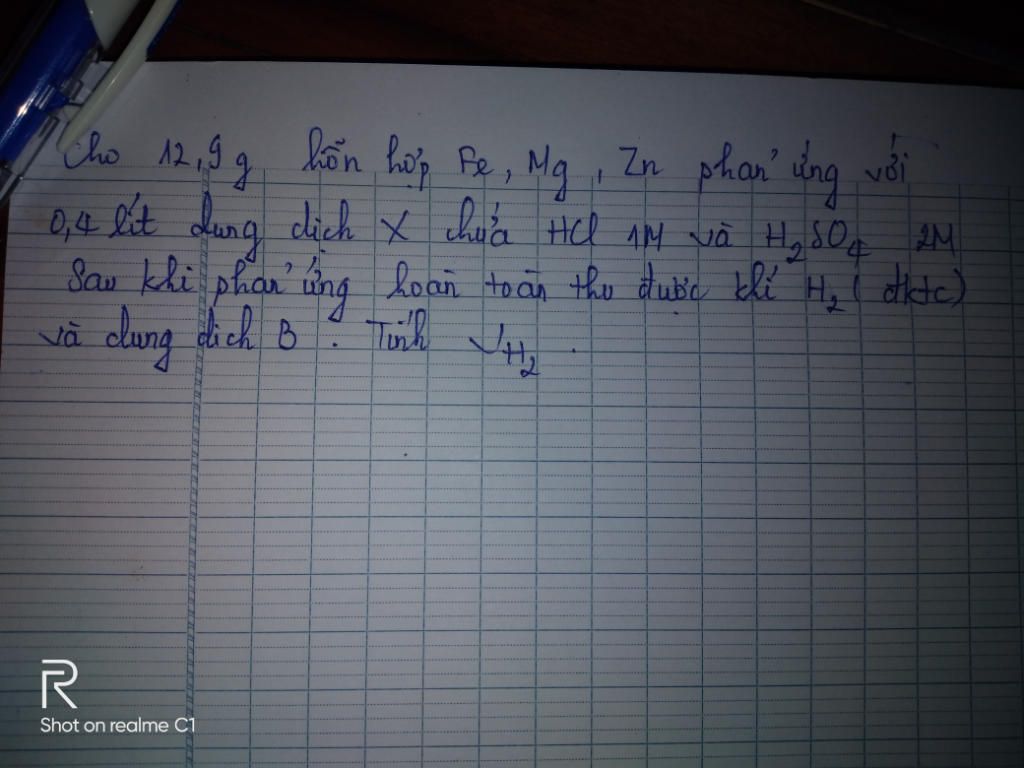 Cho 12,9g hỗn hợp Fe, Mg, Zn phản ứng với
0,4 lít dung dịch X chứa HCl 1M và H₂SO₄ 2M
Sau khi phản ứng hoàn toàn thu được khí H₂ (đktc)
và dung dịch B. Tính VH₂.
R
Shot on realme C1